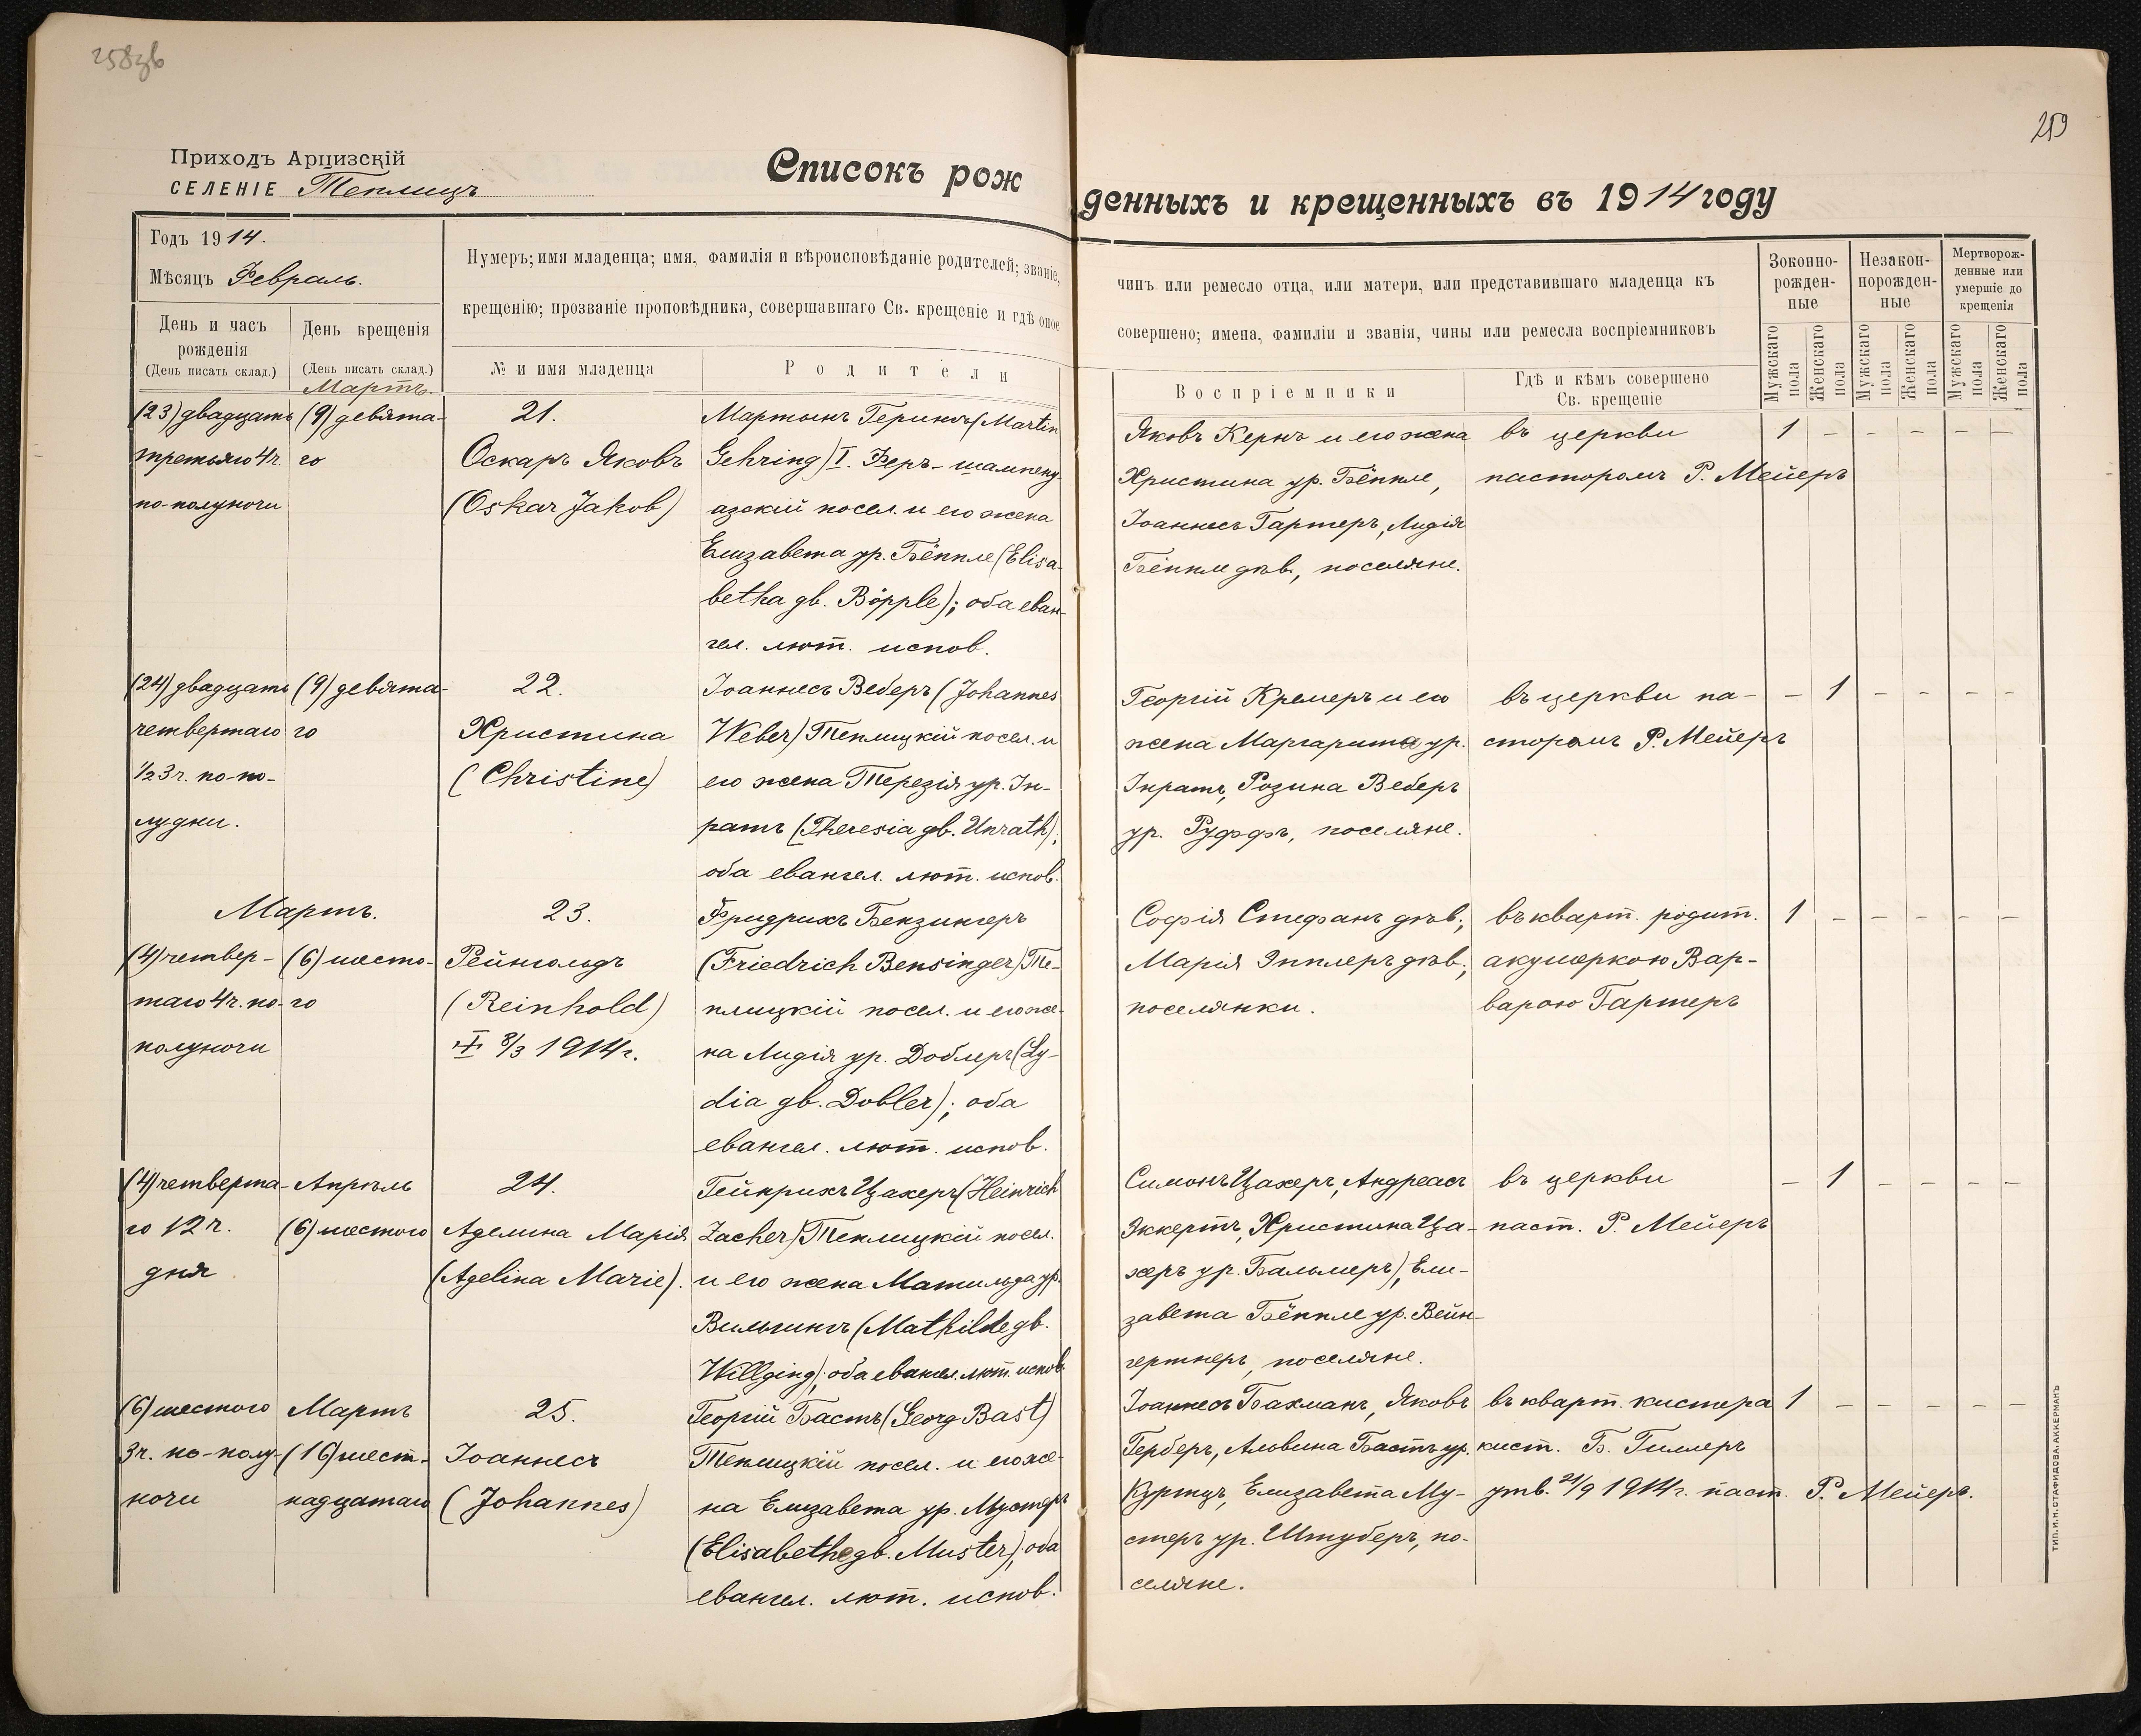 258зв
259
Приходъ Арцизскій
СЕЛЕНІЕ Теплицъ
Списокъ рож
денныхъ и крещенныхъ въ 1914 году
Годъ 1914.
Мѣсяцъ Февраль.
День и часъ
рожденія
(День писать склад.)
День крещенія
(День писать склад.)
Мартъ.
Нумеръ; имя младенца; имя, фамилія и вѣроисповѣданіе родителей; званіе,
крещенію; прозваніе проповѣдника, совершавшаго Св. крещеніе и гдѣ оное
№ и имя младенца
Родители
чинъ или ремесло отца, или матери, или представившаго младенца къ
совершено; имена, фамиліи и званія, чины или ремесла воспріемниковъ
Воспріемники
Гдѣ и кѣмъ совершено
Св. крещеніе
Зоконно-
рожден-
ные
Незакон-
норожден-
ные
Мертворож-
денные или
умершіе до
крещенія
Мужскаго пола
Женскаго пола
Мужскаго пола
Женскаго пола
Мужскаго пола
Женскаго пола
(23) двадцать
третьяго 4 ч.
по-полуночи
(9) девята-
го
21.
Оскаръ Яковъ
(Oskar Jakob)
Мартынъ Герингъ (Martin
Gehring) I. Феръ-шампену-
азскій посел. и его жена
Елизавета ур. Бёппле (Elisa-
betha gb. Böpple); оба еван-
гел. лют. испов.
Яковъ Кернъ и его жена
Христина ур. Бёппле,
Іоаннесъ Гартеръ, Лидія
Бёппле дѣв., поселяне.
въ церкви
пасторомъ Р. Мейеръ
1 – – – – –
(24) двадцать
четвертаго
½3 ч. по-по-
лудни.
(9) девята-
го
22.
Христина
(Christine)
Іоаннесъ Веберъ (Johannes
Weber) Теплицкій посел. и
его жена Терезія ур. Ін-
ратъ (Theresia gb. Unrath);
оба евангел. лют. испов.
Георгій Кремеръ и его
жена Маргарита ур.
Інратъ, Розина Веберъ
ур. Руффъ, поселяне.
въ церкви па-
сторомъ Р. Мейеръ
– 1 – – – –
Мартъ.
(4) четвер-
таго 4 ч. по-
полуночи
(6) шесто-
го
23.
Рейнгольдъ
(Reinhold)
8/3 1914 г.
Фридрихъ Бензингеръ
(Friedrich Bensinger) Те-
плицкій посел. и его же-
на Лидія ур. Доблеръ (Ly-
dia gb. Dobler); оба
евангел. лют. испов.
Софія Стефанъ дѣв.,
Марія Эпплеръ дѣв.,
поселянки.
въ кварт. родит.
акушеркою Вар-
варою Гартеръ
1 – – – – –
(4) четверта-
го 12 ч.
дня
Апрѣль
(6) шестого
24.
Аделина Марія
(Adelina Marie).
Гейнрихъ Цахеръ (Heinrich
Zacher) Теплицкій посел.
и его жена Матильда ур.
Вильгингъ (Mathilde gb.
Willging); оба евангел. лют. испов.
Симонъ Цахеръ, Андреасъ
Эккертъ, Христина Ца-
херъ ур. Бальмеръ), Ели-
завета Бёппле ур. Вейн-
гертнеръ, поселяне.
въ церкви
паст. Р. Мейеръ
– 1 – – – –
(6) шестого
3 ч. по-полу-
ночи
Мартъ
(16) шест-
надцатаго
25.
Іоаннесъ
(Johannes)
Георгій Бастъ (Georg Bast)
Теплицкій посел. и его же-
на Елизавета ур. Мустеръ
(Elisabethe gb. Muster); оба
евангел. лют. испов.
Іоаннесъ Бахманъ, Яковъ
Герберъ, Альвина Бастъ ур.
Куртцъ, Елизавета Му-
стеръ ур. Штуберъ, по-
селяне.
въ кварт. кистера
кист. Б. Гиллеръ
утв. 21/9 1914 г. паст. Р. Мейеръ.
1 – – – – –
ТИП. И. Н. СТАФИДОВА. АККЕРМАНЪ